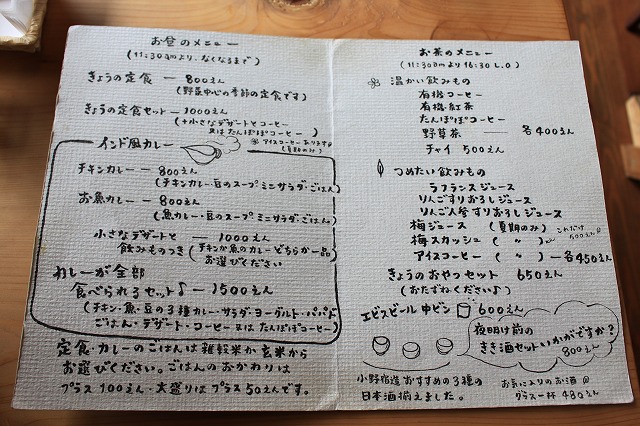 お昼のメニュー
(11:30amより、なくなるまで)
きょうの定食 — 800えん
(野菜中心の季節の定食です)
きょうの定食セット — 1000えん
(+小さなデザートとコーヒー
又はたんぽぽコーヒー)
※アイスコーヒーあります
(夏期のみ)
インド風カレー
チキンカレー — 800えん
(チキンカレー・豆のスープ ミニサラダ・ごはん)
お魚カレー — 800えん
(魚カレー・豆のスープ ミニサラダ・ごはん)
小さなデザートと — 1000えん
飲みものつき (チキンか魚のカレー どちらか一品
お選びください)
カレーが全部
食べられるセット♪ — 1500えん
(チキン・魚・豆の3種カレー・サラダ・ヨーグルト・パパド
ごはん・デザート・コーヒー又はたんぽぽコーヒー)
定食・カレーのごはんは雑穀米か玄米から
お選びください。ごはんのおかわりは
プラス100えん・大盛りはプラス50えんです。
お茶のメニュー
(11:30amより16:30 L.O)
温かい飲みもの
有機コーヒー
有機紅茶
たんぽぽコーヒー
野草茶 — 各400えん
チャイ 500えん
つめたい飲みもの
ラフランスジュース
りんごすりおろしジュース
りんご人参すりおろしジュース
梅ジュース (夏期のみ)
梅スカッシュ ( 〃 )
これだけ
500えん
アイスコーヒー ( 〃 ) — 各450えん
きょうのおやつセット 650えん
(おたずねください♪)
エビスビール 中ビン 600えん
夜明け前の
きき酒セットいかがですか?
800えん
小野酒造おすすめの3種の
日本酒揃えました。
お気に入りのお酒
グラス一杯 480えん